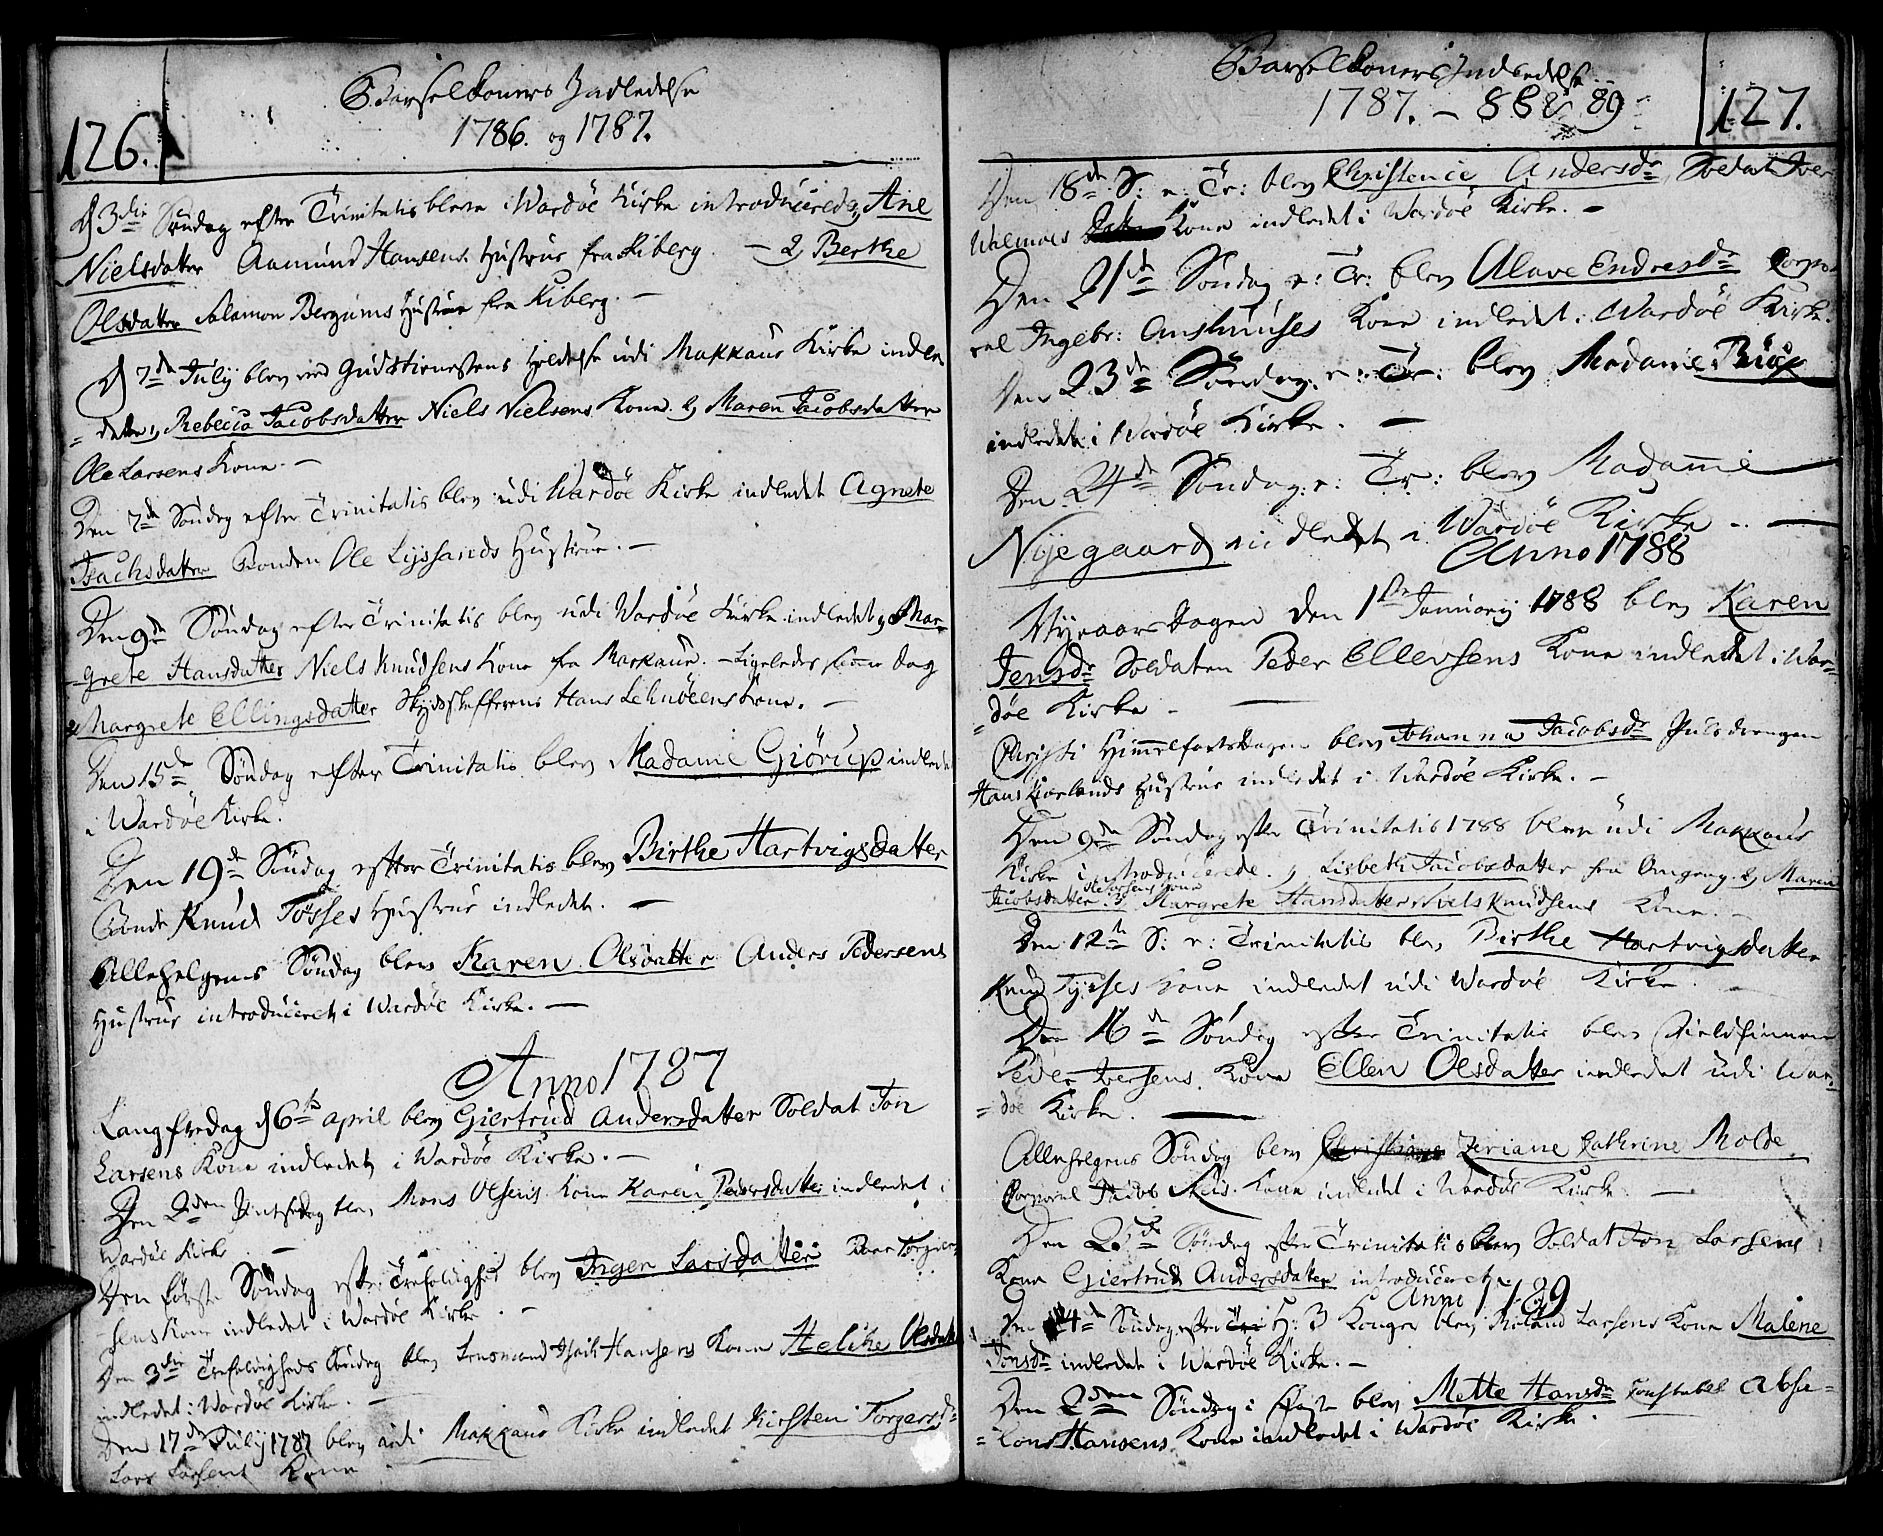 126.
Barselkoners Indledelse
1786. og 1787.
d 3die Søndag efter Trinitatis bleve i Wardöe Kirke introducered 1, Ane
Nielsdatter Aamund Hansens Hustrue fra Kiberg. — 2, Berthe
Olsdatter Salamon Bergums Hustrue fra Kiberg. —
d 7de July blev ved Gudstienestens Holdelse udi Makkaur Kirke indle-
= dede 1, Rebecca Jacobsdatter Niels Nielsens Kone. 2, Maren Jacobsdatter
Ole Larsens Kone. —
Den 7de Søndag efter Trinitatis blev udi Wardöe Kirke indledet Agnete
Isachsdatter Bonden Ole Lyssands Hustrue. —
Den 9de Søndag efter Trinitatis blev udi Wardöe Kirke indledet 1, Mar-
grete Hansdatter Niels Knudsens Kone fra Makkaur. — Ligeledes samme Dag
2 Margrete Ellingsdatter Skydsskafferens Hans Lehnöeens Kone. —
Den 15de Søndag efter Trinitatis blev Madame Giörup indledet
i Wardöe Kirke.
Den 19de Søndag efter Trinitatis blev Birthe Hartvigsdatter
Bonde Knud Tösses Hustrue indledet. —
Allehelgens Søndag blev Karen Olsdatter Anders Pedersens
Hustrue introduceret i Wardöe Kirke. —
Anno 1787
Langfredag d 6te april blev Giertrud Andersdatter Soldat Jon
Larsens Kone indledet i Wardöe Kirke. —
Den 2den Pintsedag blev Mons Olsens Kone Karen Pedersdatter indledet i
Wardöe Kirke —
Den første Søndag efter Trefoldighed blev Ingen Larsdatter Peer Torgier-
sens Kone indledet i Wardöe Kirke. —
Den 3die Trefoldigheds Søndag blev Lensmand Isach Hansens Kone Helche Olsdatter
indledet i Wardöe Kirke. —
Den 17de July 1787 blev udi Makkaur Kirke indledet Kirsten Torgersdr
Lars Larsens Kone
127.
Barselkoners Indledelse
1787. — 88 & 89
Den 18de S: e: Tr: blev Christence Andersdr Soldat Iver
Kone indledet i Wardöe Kirke. —
Den 21de Søndag e: Tr: blev Alave Endresdr Corpo-
ral Ingebr: Kone indledet i Wardöe Kirke.
Den 23de Søndag e: Tr: blev Madame
indledet i Wardöe Kirke. —
Den 24de Søndag e: Tr: blev Madame
Nyegaard indledet i Wardöe Kirke. —
Anno 1788
Nyeaars Dagen den 1ste January 1788 blev Karen
Jensdr Soldaten Peder Ellevsens Kone indledet i War-
= döe Kirke —
Christi Himmelfartsdagen blev Johanna Jacobsdr
Hans Hustrue indledet i Wardöe Kirke. —
Den 9de Søndag efter Trinitatis 1788 bleve udi Makkaur
Kirke introducerede. 1, Lisbeth Jacobsdatter fra Omgang. 2, Maren
Jacobsdatter Kone 3 Margrete Hansdatter Niels Knudsens Kone. —
Den 12te S: e: Trinitatis blev Birthe Hartvigsdatter
Knud Kone indledet udi Wardöe Kirke.
Den 16de Søndag efter Trinitatis blev Fieldfinnen
Peder Iversens Kone Ellen Olsdatter indledet udi War-
= döe Kirke. —
Allehelgens Søndag blev Ziriane Cathrine Molde
Corporal Jacob Kone indledet i Wardöe Kirke. —
Den Søndag efter Trinitatis blev Soldat Jon Larsens
Kone Giertrud Andersdatter introduceret
Anno 1789
Den 4de Søndag efter H: 3 Konger blev Roland Larsens Kone Malene
Jonsdr indledet i Wardöe Kirke. —
Den 2den Søndag i Faste blev Mette Hansdr Constabel Absa-
= lons Hansens Kone indledet i Wardöe Kirke.